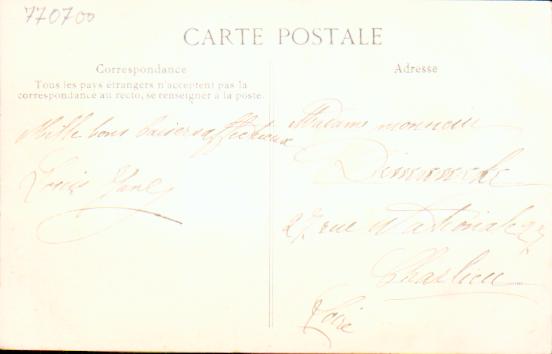 770700
CARTE POSTALE
Correspondance
Tous les pays étrangers n'acceptent pas la
correspondance au recto, se renseigner à la poste.
Mille bons baisers affectueux
Louis
Adresse
Madame
27 rue Nationale 27
Charlieu
Loire